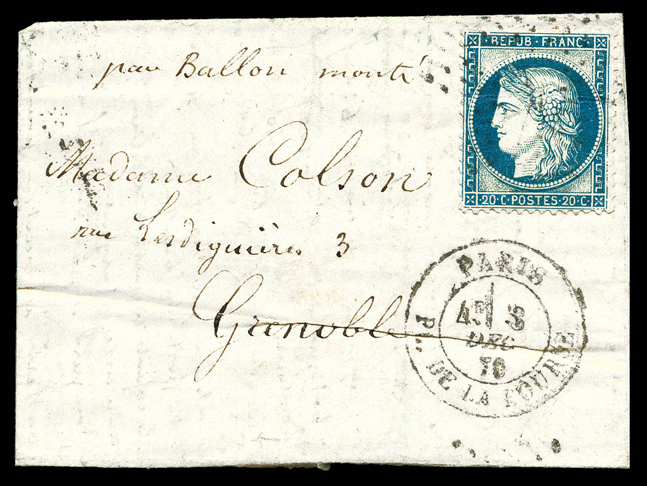 par Ballon monté
REPUB·FRANC·
20·C·POSTES·20·C·
Madame Colson
rue Lesdiguières 3
Grenoble
PARIS
3
DEC
70
PL. DE LA BOURSE